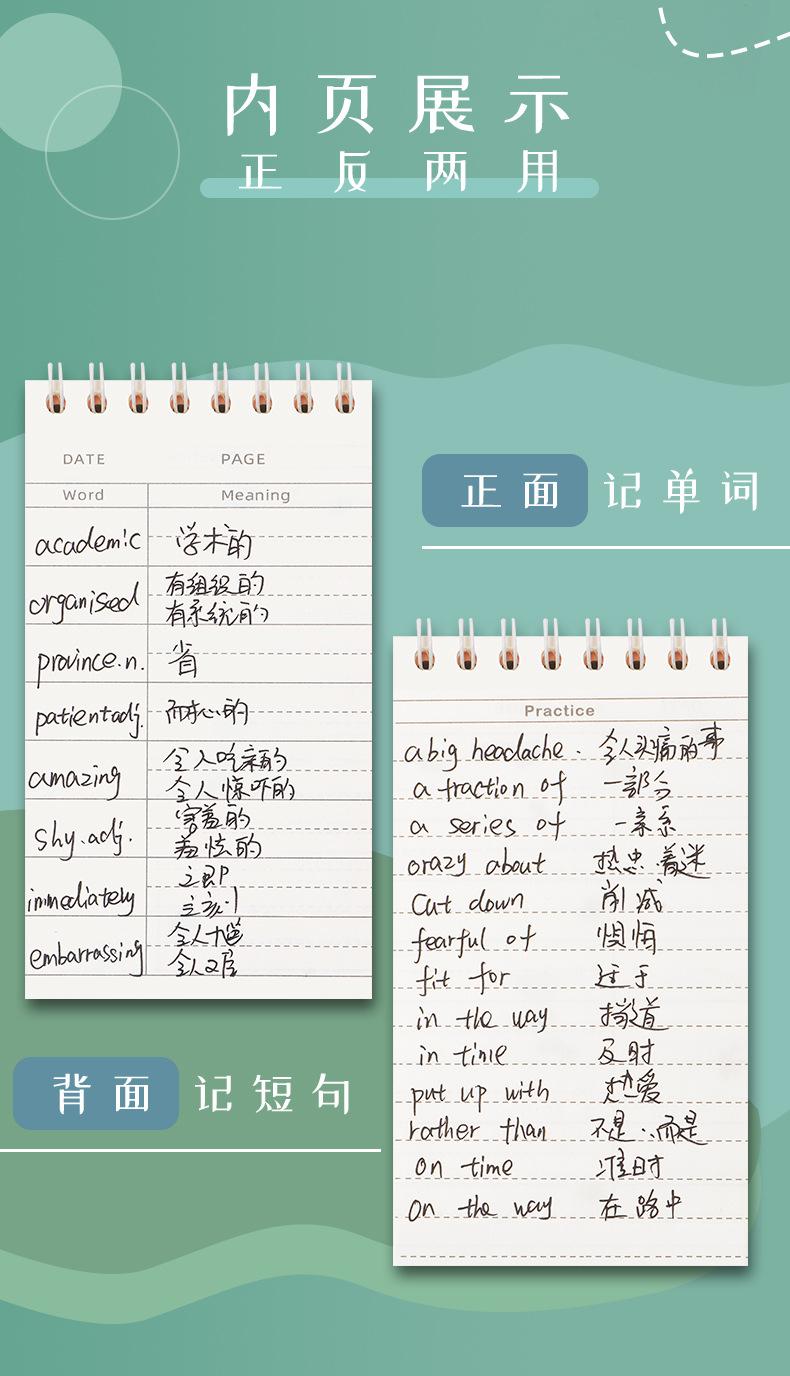 内页展示
正反两用
DATE PAGE
Word Meaning
academic 学术的
organised 有组织的
有系统的
province.n. 省
patient adj. 耐心的
amazing 令人吃亲的
令人惊吓的
shy.adj. 害羞的
羞怯的
immediately 立即
立刻
embarrassing 令人尴
令人
正面 记单词
Practice
a big headache. 令人头痛的事
a fraction of 一部分
a series of 一亲系
crazy about 热忠.着迷
cut down 削减
fearful of 惧怕
fit for 过于
in the way 挡道
in time 及时
put up with 热爱
rather than 不是..而是
on time 准时
on the way 在路中
背面 记短句